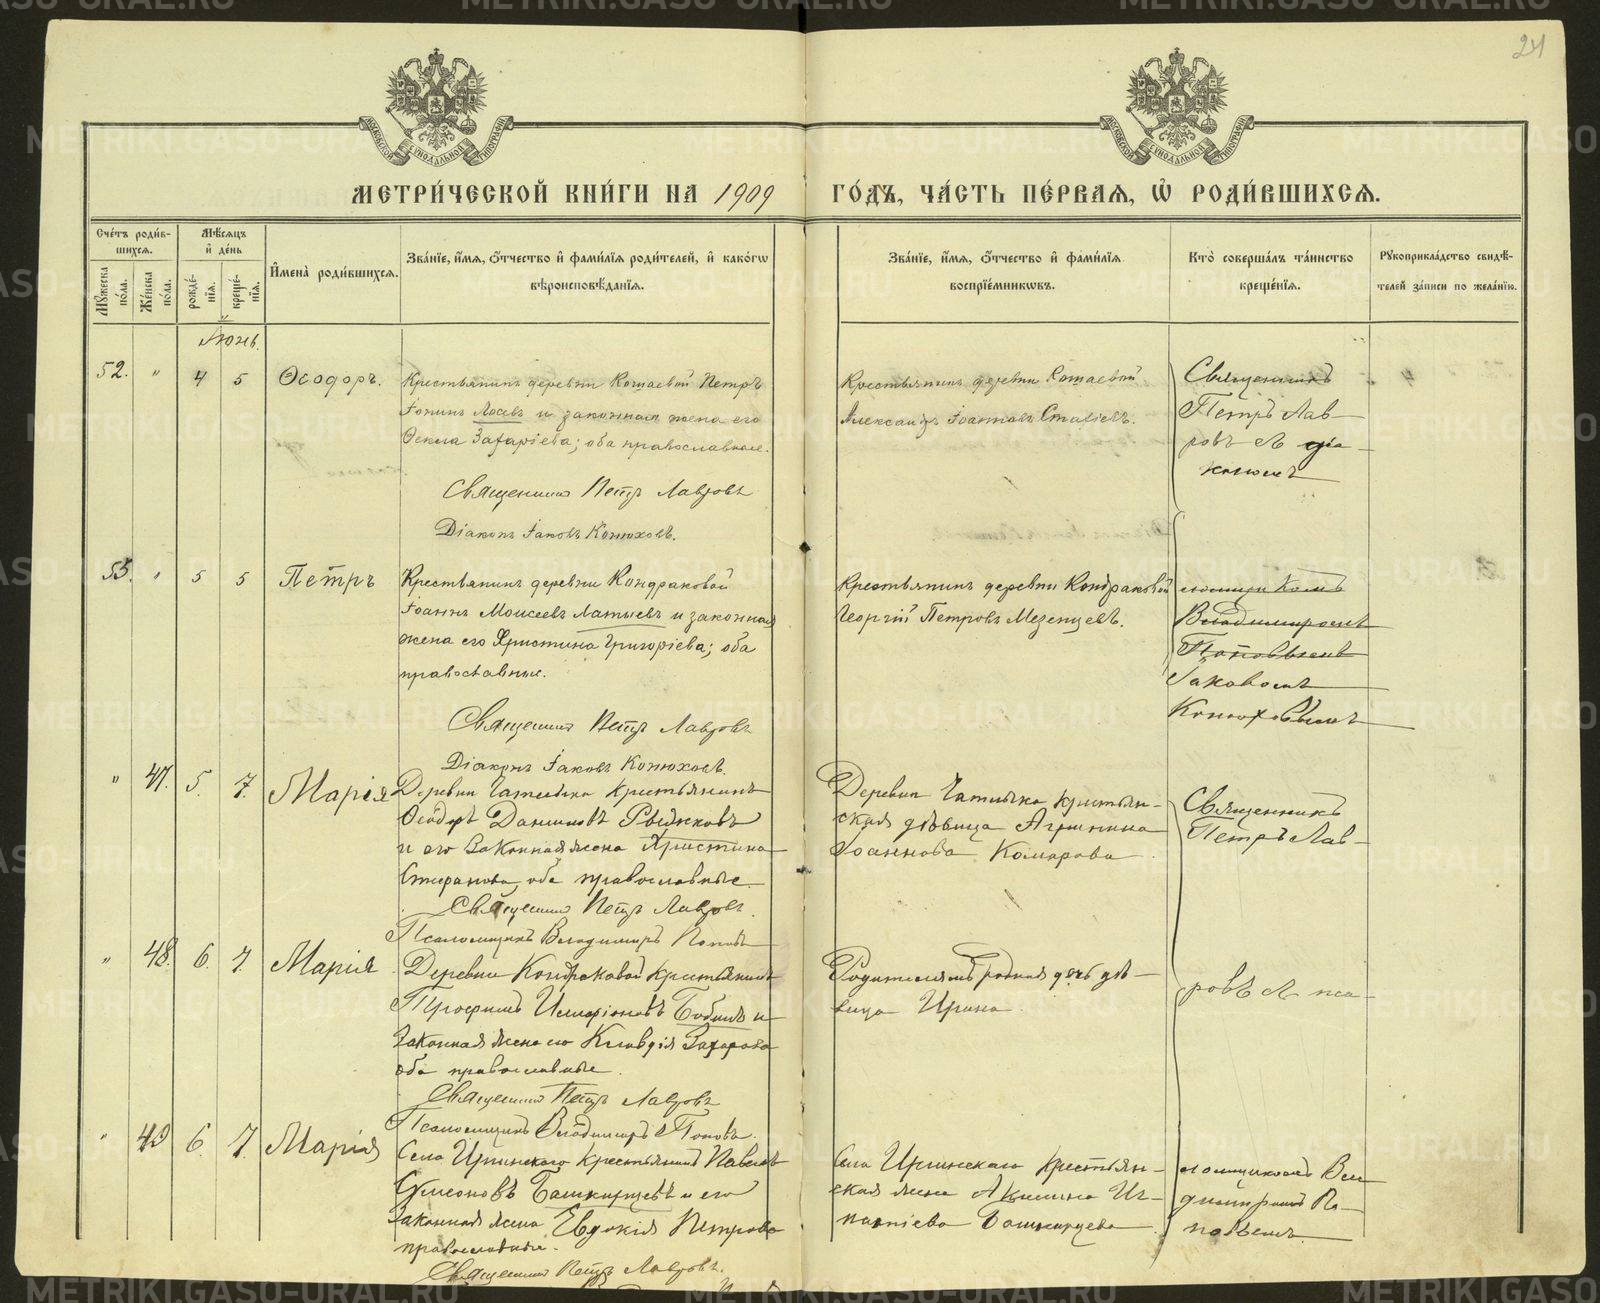 24
МОСКОВСКОЙ СѴНОДАЛЬНОЙ ТИПОГРАФІИ
МОСКОВСКОЙ СѴНОДАЛЬНОЙ ТИПОГРАФІИ
МЕТРИ́ЧЕСКОЙ КНИ́ГИ НА 1909 ГО́ДЪ, ЧА́СТЬ ПЕ́РВАЯ, Ѿ РОДИ́ВШИХСЯ.
Сче́тъ роди́в-
шихся.
Му́жеска по́ла.
Же́нска по́ла.
Мѣ́сяцъ
и҆ де́нь
рожде́-
нїя.
креще́-
нїя.
И҆мена̀ роди́вшихся.
Зва́нїе, и҆́мя, о҆́тчество и҆ фамн́лїя роди́телей, и҆ како́гѡ
вѣроисповѣ́данїя.
Зва́нїе, и҆́мя, о҆́тчество и҆ фами́лїя
воспрїе́мникѡвъ.
Кто̀ соверша́лъ та́инство
креще́нїя.
Рꙋкоприкла́дство свидѣ́-
телей за́писи по жела́нїю.
Іюнь.
52. " 4 5 Ѳеодоръ.
Крестьянинъ деревни Кошаевой Петръ
Іонинъ Лосевъ и законная жена его
Ѳекла Захаріева; оба православные.
Священникъ Петръ Лавровъ
Діаконъ Іаковъ Конюховъ.
Крестьянинъ деревни Кошаевой
Александръ Іоанновъ
Священникъ
Петръ Лав-
ровъ съ діа-
кономъ
53. " 5 5 Петръ
Крестьянинъ деревни Кондраковой
Іоаннъ Моисеевъ Латышевъ и законная
жена его Христина Григоріева; оба
православные.
Священникъ Петръ Лавровъ
Діаконъ Іаковъ Конюховъ.
Крестьянинъ деревни Кондраковой
Георгій Петровъ Мезенцевъ.
Владиміромъ
Поповымъ
Іаковомъ
Конюховымъ
" 47. 5. 7. Марія
Деревни крестьянинъ
Ѳеодоръ Даниловъ Рыжковъ
и его законная жена Христина
Стефанова, оба православные.
Священникъ Петръ Лавровъ.
Псаломщикъ Владиміръ Поповъ
Деревни крестьян-
ская дѣвица Агрипина
Іоаннова Комарова.
Священникъ
Петръ Лав-
" 48. 6. 7. Марія
Деревни Кондраковой крестьянинъ
Трофимъ Иларіоновъ и
законная жена его Клавдія Захарова
оба православные.
Священникъ Петръ Лавровъ
Псаломщикъ Владиміръ Поповъ.
Родителямъ родная дочь дѣ-
вица Ирина.
ровъ съ пса-
" 49 6. 7. Марія
Села Иргинскаго крестьянинъ Павелъ
Симеоновъ Башкирцевъ и его
законная жена Евдокія Петрова
православные.
Священникъ Петръ Лавровъ.
Села Иргинскаго крестьян-
ская жена Акилина Иг-
натіева Башкирцева.
ломщикомъ Вла-
диміромъ По-
повымъ.